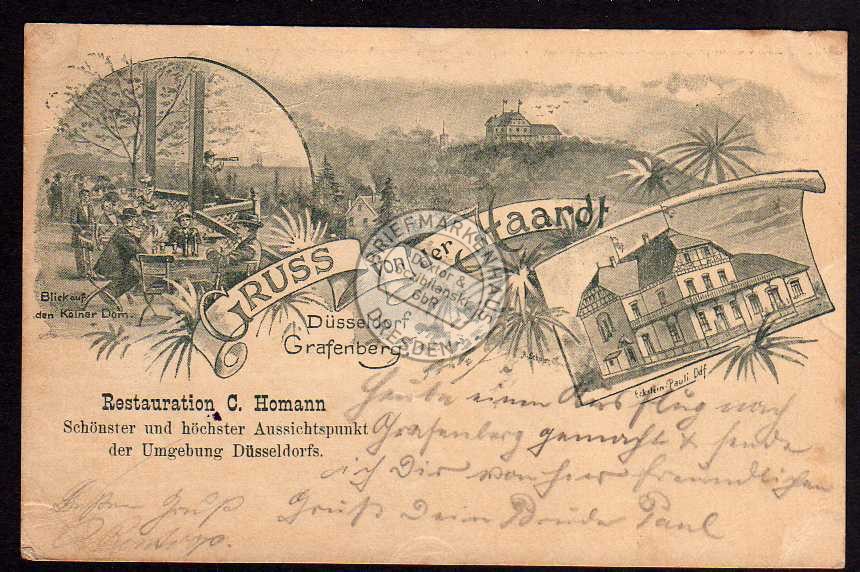 Blick auf
den Kölner Dom.
GRUSS von der Haardt
Düsseldorf
Grafenberg.
Eckstein-Pauli. Ddf.
BRIEFMARKENHAUS
Doktor &
GbR
DRESDEN
Restauration C. Homann
Schönster und höchster Aussichtspunkt
der Umgebung Düsseldorfs.
Heute einen Ausflug nach
Grafenberg gemacht & sende
ich Dir von hier freundlichen
Gruß Dein Bruder Paul
Besten Gruß